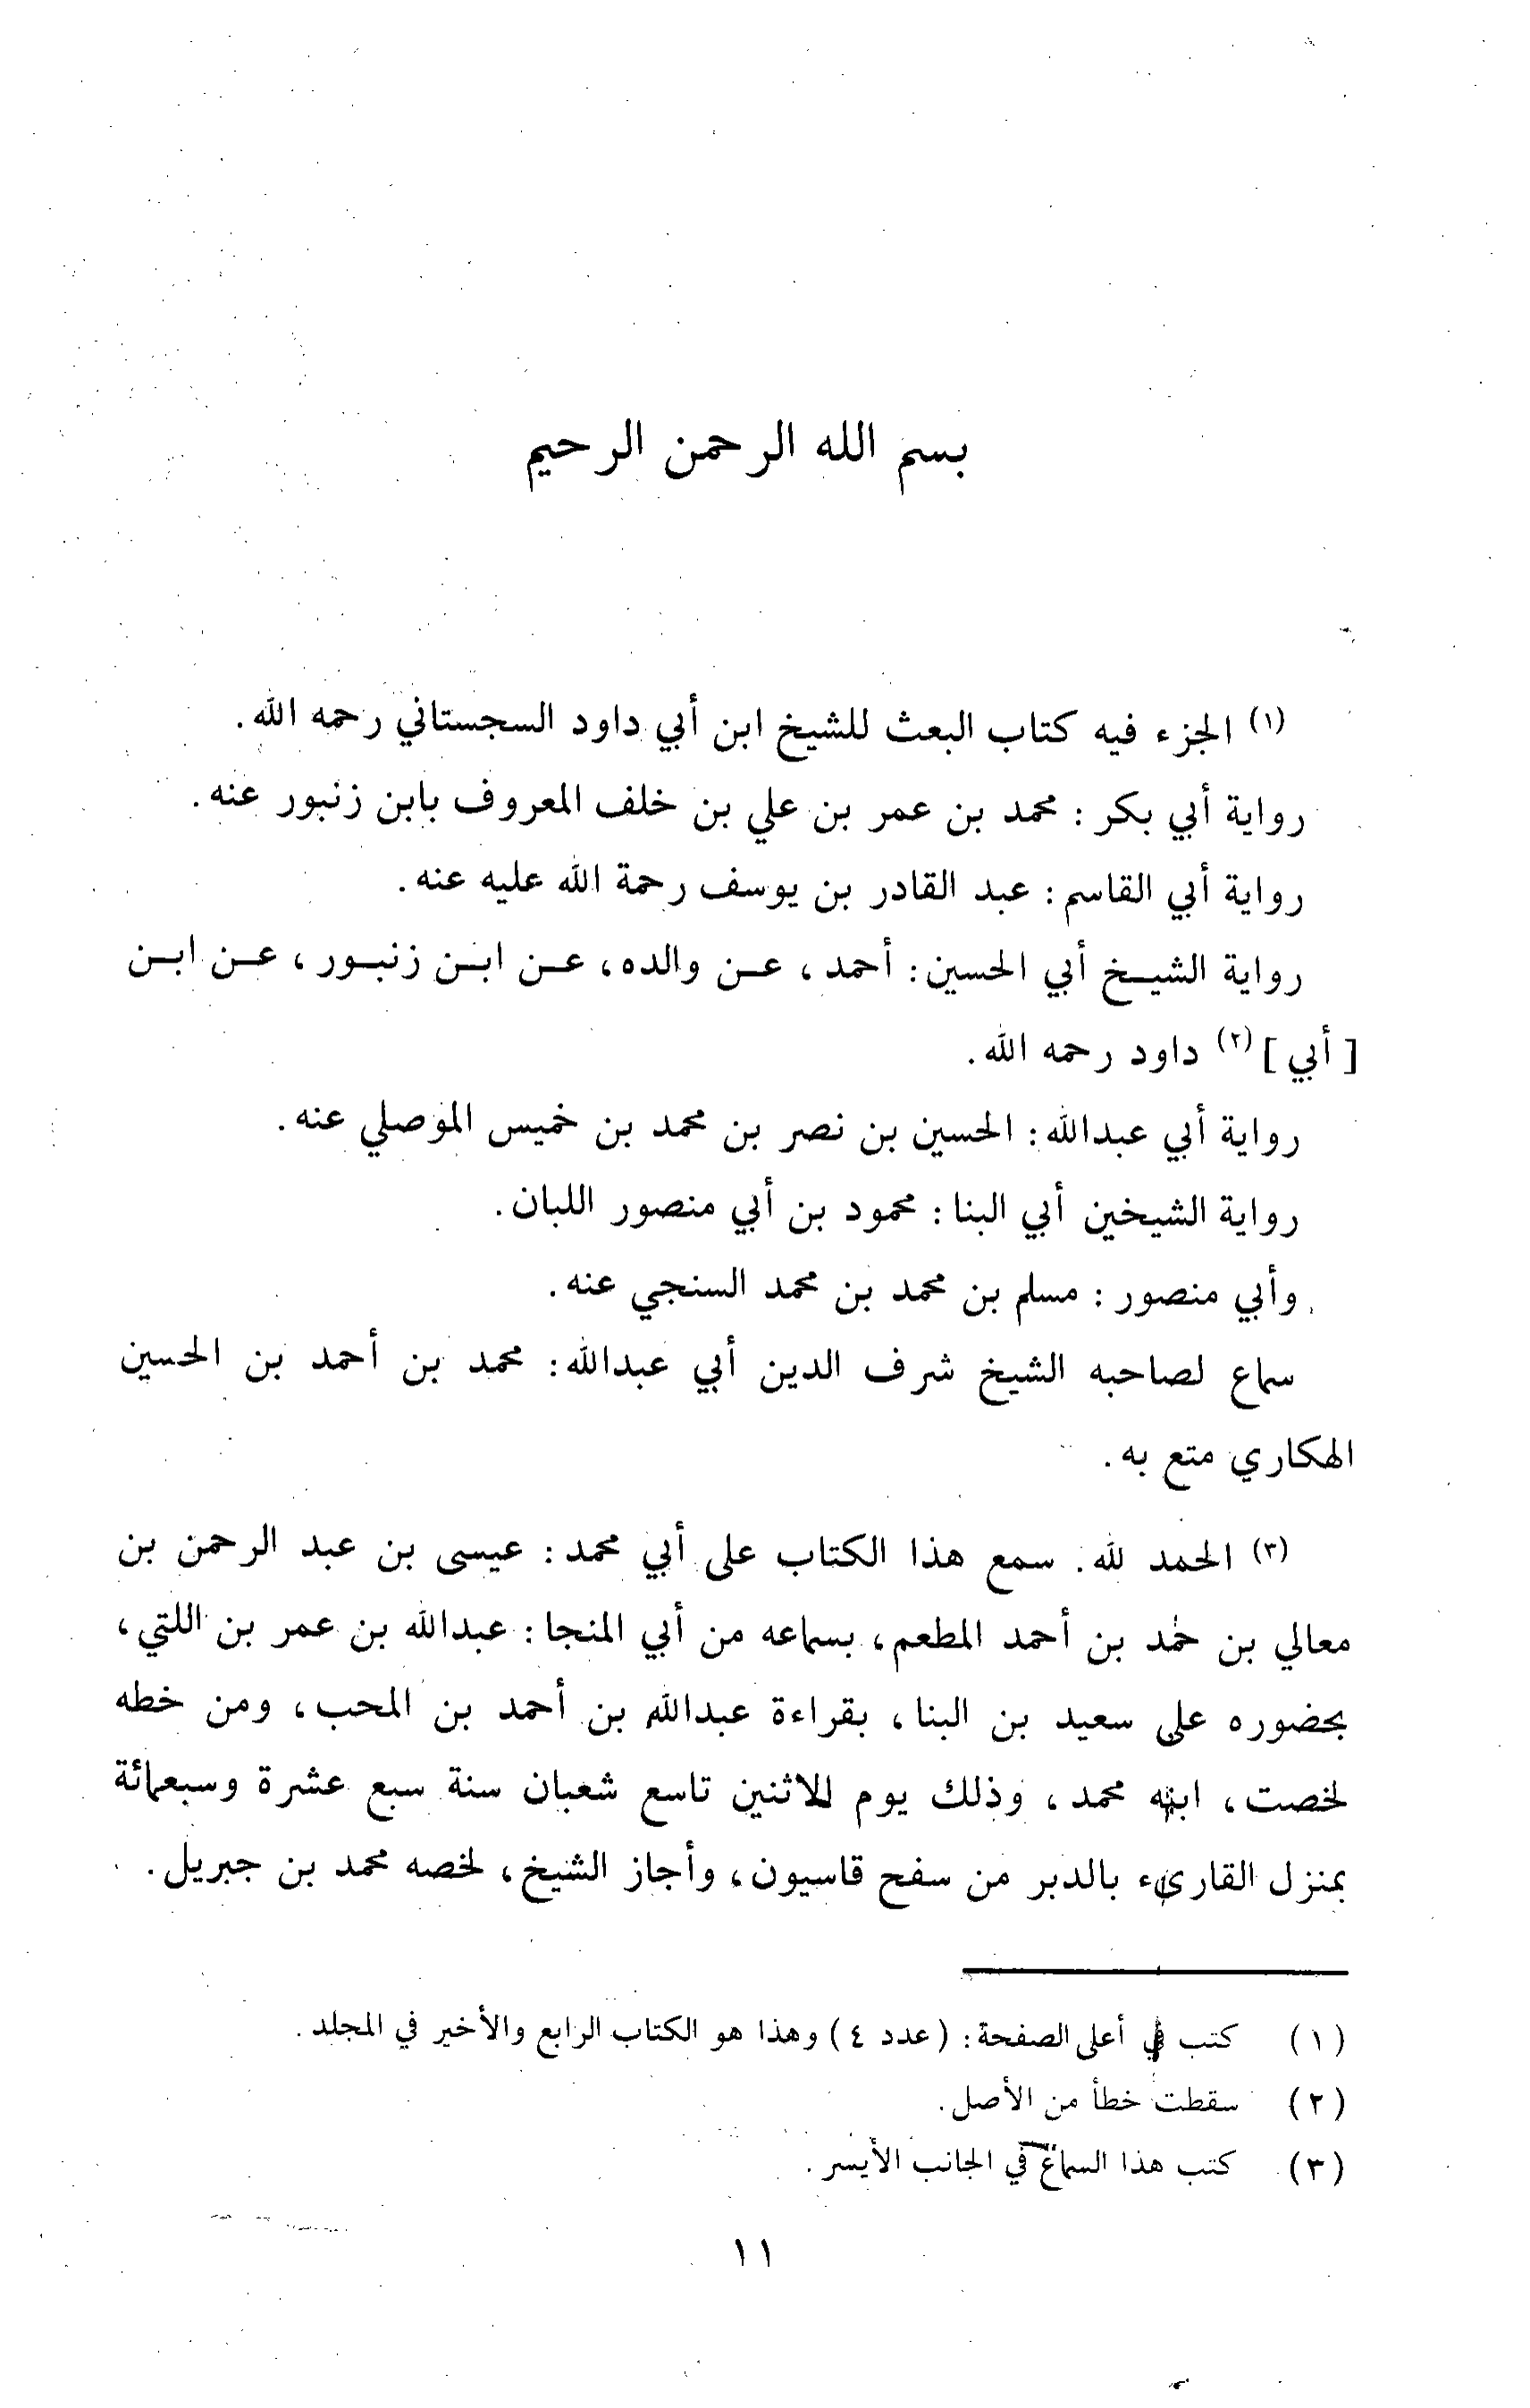 بسم الله الرحمن الرحيم
(١) الجزء فيه كتاب البعث للشيخ ابن أبي داود السجستاني رحمه الله.
رواية أبي بكر: محمد بن عمر بن علي بن خلف المعروف بابن زنبور عنه.
رواية أبي القاسم: عبد القادر بن يوسف رحمة الله عليه عنه.
رواية الشيخ أبي الحسين: أحمد، عن والده، عن ابن زنبور، عن ابن
[أبي](٢) داود رحمه الله.
رواية أبي عبدالله: الحسين بن نصر بن محمد بن خميس الموصلي عنه.
رواية الشيخين أبي البنا: محمود بن أبي منصور اللبان.
وأبي منصور: مسلم بن محمد بن محمد السنجي عنه.
سماع لصاحبه الشيخ شرف الدين أبي عبدالله: محمد بن أحمد بن الحسين
الهكاري متع به.
(٣) الحمد لله. سمع هذا الكتاب على أبي محمد: عيسى بن عبد الرحمن بن
معالي بن حمد بن أحمد المطعم، بسماعه من أبي المنجا: عبدالله بن عمر بن اللتي،
بحضوره على سعيد بن البنا، بقراءة عبدالله بن أحمد بن المحب، ومن خطه
لخصت، ابنه محمد، وذلك يوم الاثنين تاسع شعبان سنة سبع عشرة وسبعمائة
بمنزل القارىء بالدبر من سفح قاسيون، وأجاز الشيخ، لخصه محمد بن جبريل.
(١) كتب في أعلى الصفحة: (عدد ٤) وهذا هو الكتاب الرابع والأخير في المجلد.
(٢) سقطت خطأ من الأصل.
(٣) كتب هذا السماع في الجانب الأيسر.
١١